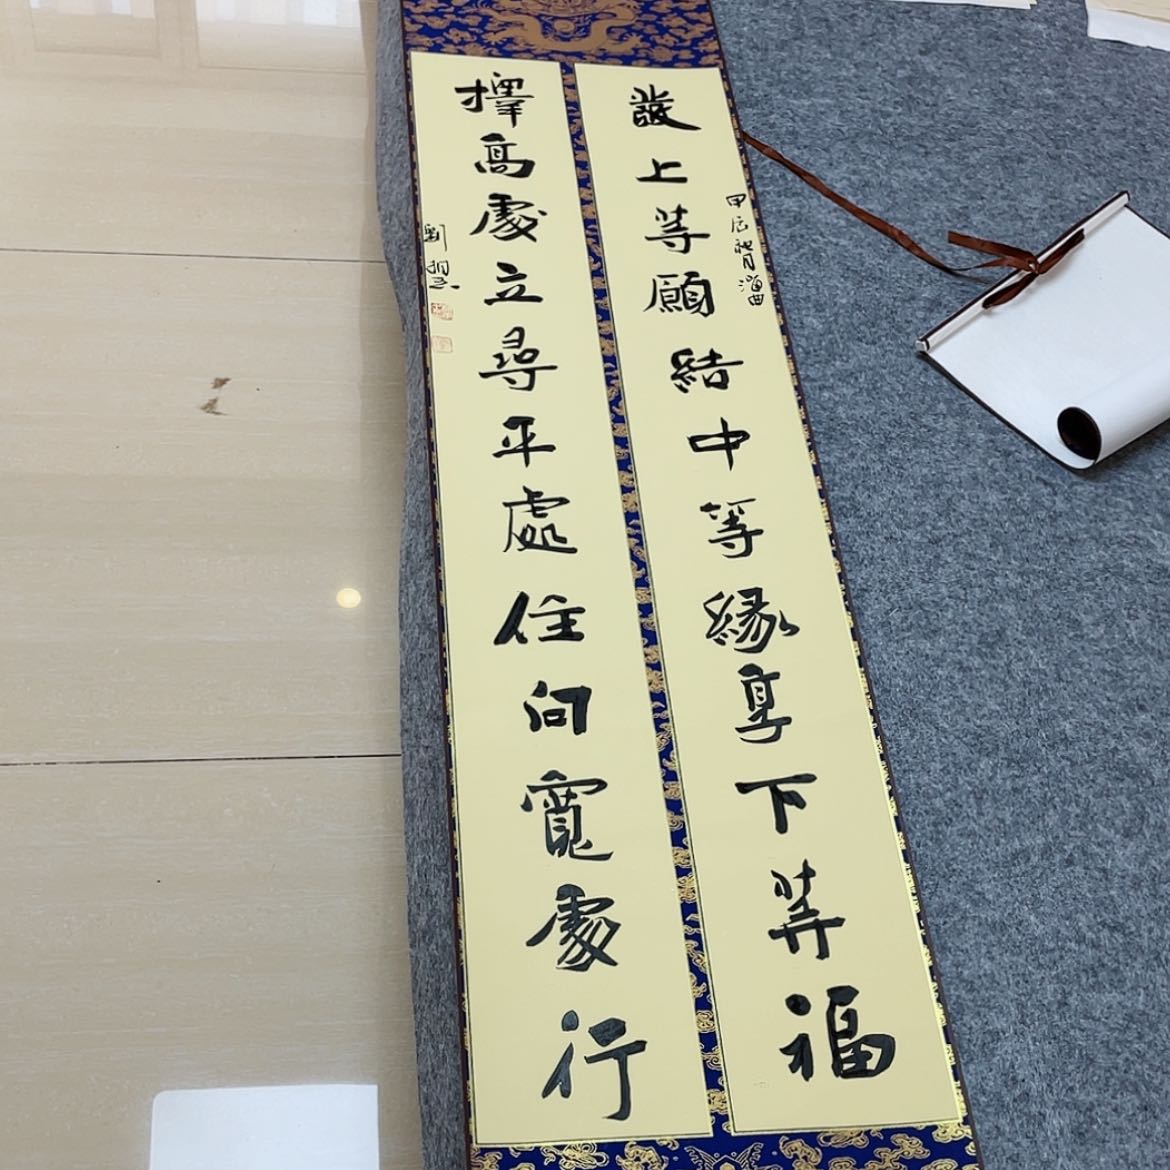 發上等願結中等緣享下等福
甲辰
擇高處立尋平處住向寬處行
劉